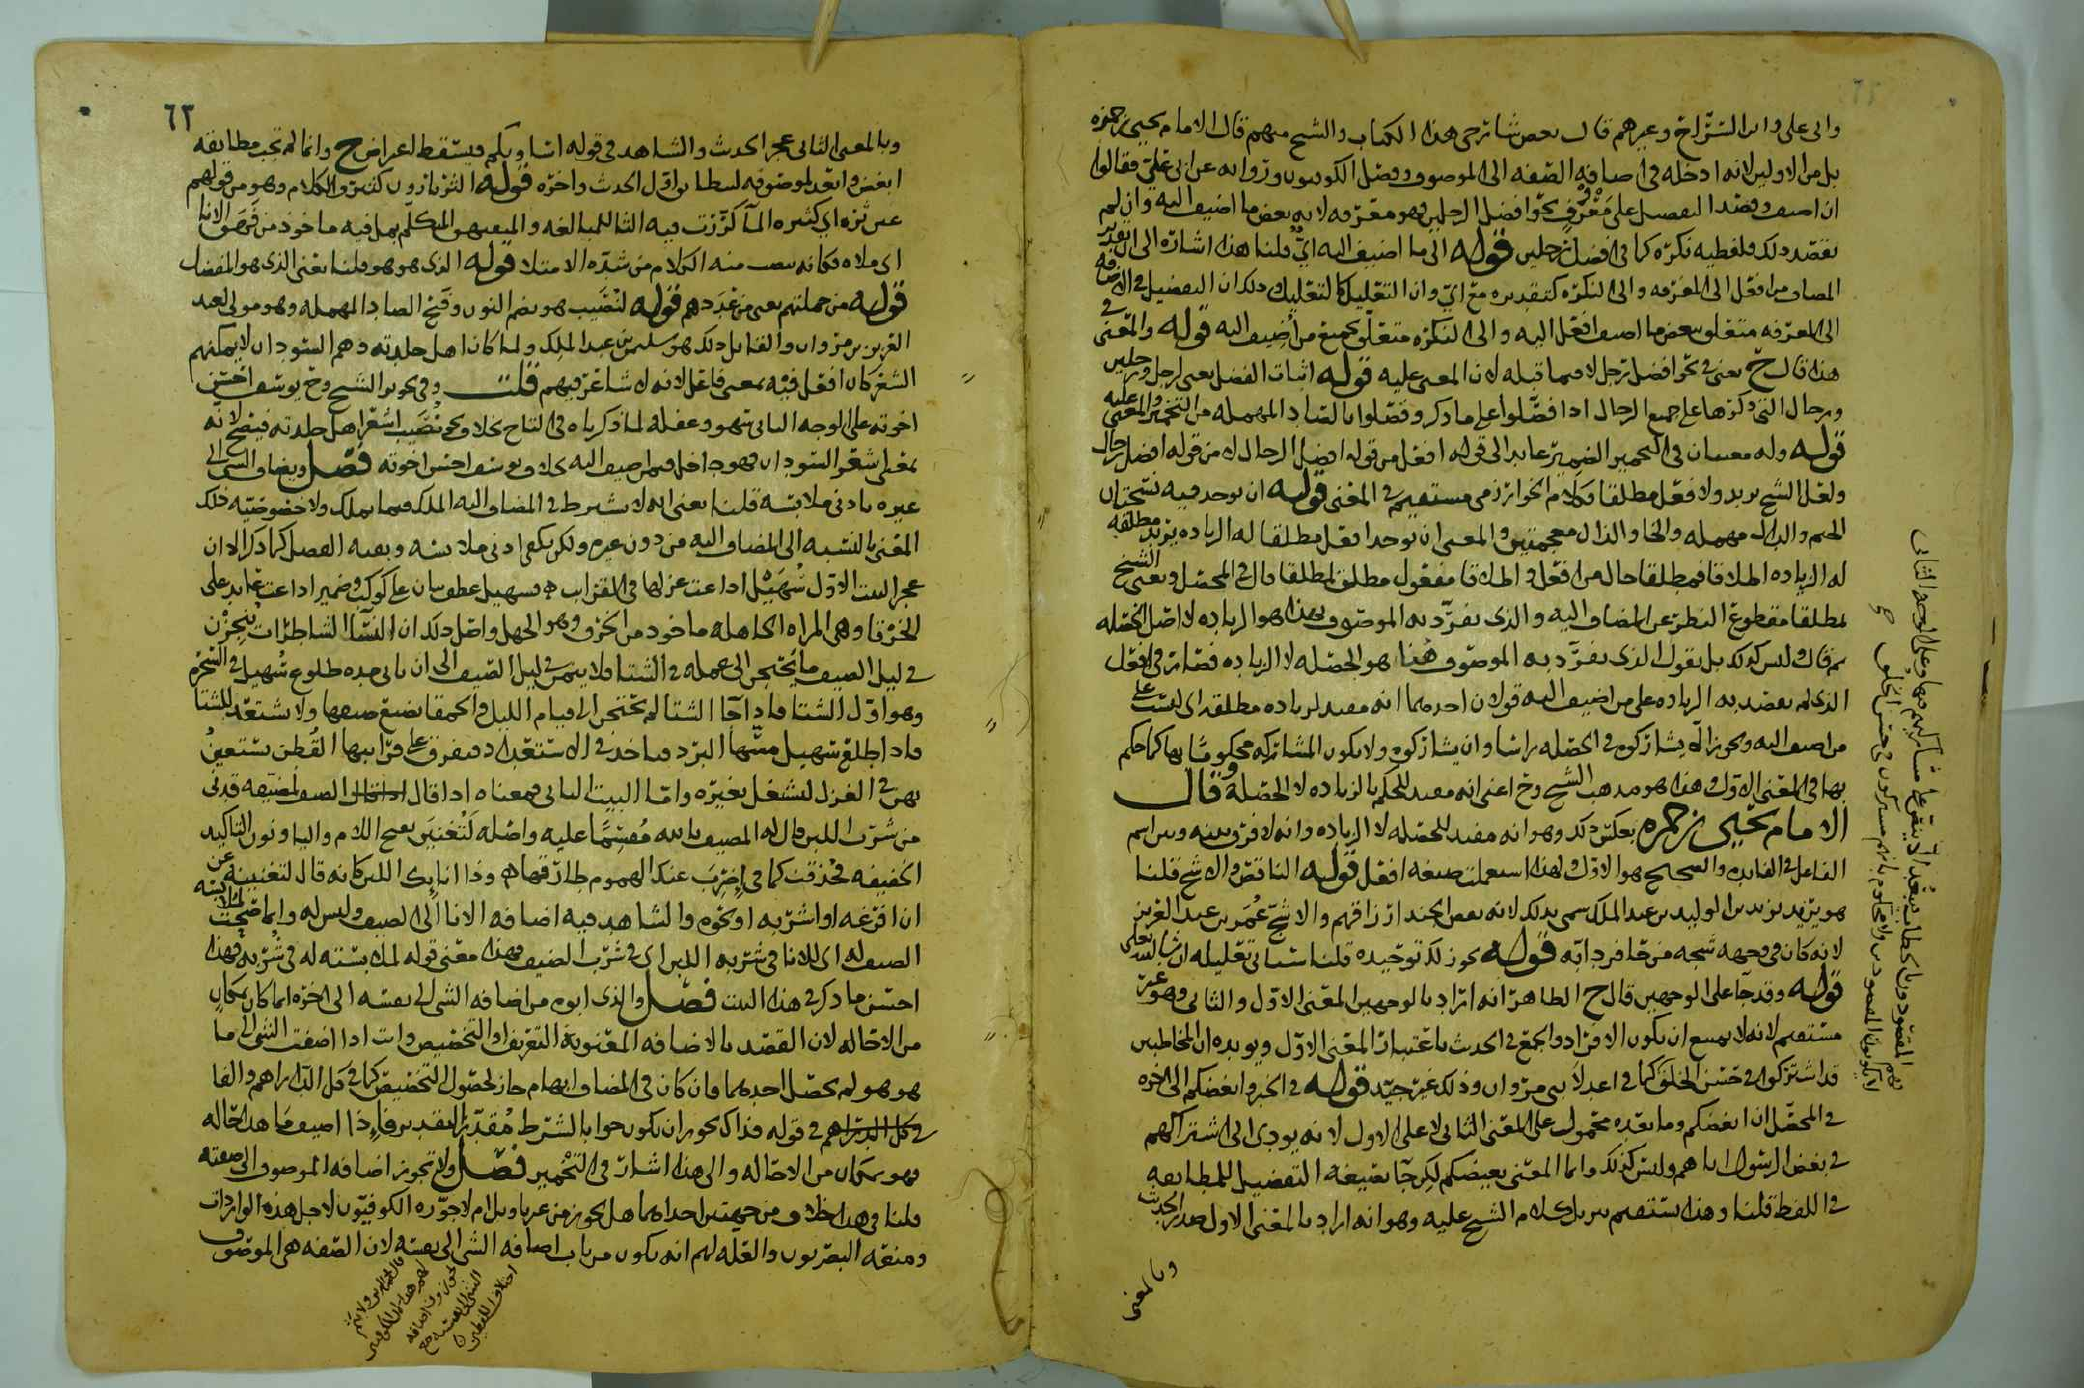 وابى على وابن السراج وغيرهم قال بعض شارحى هذا الكتاب والشيخ منهم قال الامام يحيى بن حمزه
بل من الاولين لانه ادخله فى اضافه الصفه الى الموصوف وفصل الكوفيون ورواه عن ابى على فقالوا
ان اضيف وقصد التفصيل على معرف نحو افضل الرجلين فهو معرفه لانه بعض ما اضيف اليه وان لم
يقصد ذلك فلفظيه نكره كما فى افضل رجلين قوله الى ما اضيف اليه اى قلنا هذا اشاره الى ان تقدير
المضاف من افعل الى المعرفه والى النكره كتقديره مع اى وان التعليل كالتعليل وذلك ان التفضيل فى الاضافه
الى المعرفه متعلق ببعض ما اضيف افعل اليه والى النكره متعلق بجميع من اضيف اليه قوله والمعنى فى
هذا قال ح يعنى فى نحو افضل رجل لا فيما قبله لان المعنى عليه قوله اثبات الفضل يعنى لرجل ورجلين
ورجال التى ذكرها على جميع الرجال اذا فضلوا على ما ذكر وفضلوا بالضاد المهمله من التخمير والمعنى عليه
قوله وله معنيان فى التخمير الضمير عايد الى قوله افعل من قوله افضل الرجال لا من قوله افضل رجال
ولعل الشيخ يريد ولا فعل مطلقا فكلام الخوارزمى مستقيم فى المعنى قوله ان يوجد فيه نسختان
الجيم والدال مهمله والخا والذال معجمتين والمعنى ان يوجد افعل مطلقا له الزياده يريد مطلقه
له الزياده اطلاقا فمطلقا حال من افعل واطلاقا مفعول مطلق لمطلقا قال فى المحصل ويعنى الشيخ
بمطلقا مقطوع النظر عن المضاف اليه والذى تفرد به الموصوف بهذا هو الزياده لا اصل الخصله
ثم قال وليس كذلك بل نقول الذى تفرد به الموصوف هنا هو الخصله لا الزياده فصار فى افعل
الذى لم يقصد به الزياده على من اضيف اليه قولان احدهما انه مفيد لزياده مطلقه اى ليست على
من اضيف اليه ويجوز ان يشاركوه فى الخصله راسا وان يشاركوه ولا يكون المشاركه محكوما بها كما حكم
بها فى المعنى الاول وهذا هو مذهب الشيخ وح اعنى انه مفيد للحكم بالزياده لا الخصله وقال
الامام يحيى بن حمزه بعكس ذلك وهو انه مفيد للخصله لا الزياده وانه لا فرق بينه وبين اسم
الفاعل فى الفايده والصحيح هو الاول ولهذا استعملت صيغه افعل قوله الناقص والاشج قلنا
هو يزيد بن الوليد بن عبد الملك سمى بذلك لانه نقص الجند ارزاقهم والاشج عمر بن عبد العزيز
لانه كان فى وجهه شجه من رمحا فرس دابه قوله يجوز لك توحيده قلنا سياتى تعليله ان شا الله تعالى
قوله وقد جا على الوجهين قال ح الظاهر انه اراد بالوجهين المعنى الاول والثانى وهو غير
مستقيم لانه لا يمتنع ان يكون الافراد والجمع فى الحديث باعتبار المعنى الاول ويويده ان المخاطبين
قد اشتركوا فى حسن الخلق كما فى اعدلا بنى مروان وذلك غير جيد قوله فى الخبر وابغضكم الى اخره
فى المحصل ان ابغضكم وما بعده محمول على المعنى الثانى لا على الاول لانه يودى الى اشتراكهم
فى بغض الرسول اياهم وليس كذلك وانما المعنى بغيضكم لكن جا بصيغه التفضيل للمطابقه
فى اللفظ قلنا وهذا مستقيم ينزل كلام الشيخ عليه وهو انه اراد بالمعنى الاول صدر الحديث
وبالمعنى
٦٢
وبالمعنى الثانى عجز الحديث والشاهد فى قوله اساويكم فيسقط اعراض ح وانما لم تجب مطابقه
ابغض وابعد لموصوفه ليطابق اول الحديث واخره قوله الثرثارون كثيروا الكلام وهو من قولهم
عين ثره اى كثيره الما كررت فيه الثا للمبالغه والمتفيهق المتكلم بمل فيه ماخوذ من فهق الانا
اى ملاه فكانه ينصب منه الكلام من شده الامتلا قوله الذى هو هو قلنا يعنى الذى هو المفضل
قوله من جملتهم يعنى من عددهم قوله لنصيب هو بضم النون وفتح الصاد المهمله وهو مولى لعبد
العزيز بن مروان والقايل ذلك هو سليمن بن عبد الملك ولما كان اهل جلدته وهم السودان لا يمكنهم
الشعر كان افعل فيه بمعنى فاعل لانه لا شاعر فيهم قلت وفى تجويز الشيخ وح يوسف احسن
اخوته على الوجه الثانى سهو وغفله لما ذكرناه فى التاج بخلاف نحو نصيب اشعر اهل جلدته فيصح لانه
بمعنى اشعر السودان فهو داخل فيمن اضيف اليه بخلاف يوسف احسن اخوته فصل ويضاف الشى الى
غيره بادنى ملابسه قلنا يعنى انه لا يشترط فى المضاف اليه الملك فيما يملك ولا خصوصيه ذلك
المعنى بالنسبه الى المضاف اليه من دون غيره ولكن يكفى ادنى ملابسه وبقيه الفصل كما ذكر الا ان
عجز البيت الاول سهيل اذاعت غزلها فى القرايب وسهيل عطف بيان على كوكب وضمير اذاعت عايد على
الخرقا وهى المراه الجاهله ماخوذ من الخرق وهو الجهل واصل ذلك ان النسا الشاطرات ينجزن
فى ليل الصيف ما يحتجن الى عمله فى الشتا فلا ينمن فى ليل الصيف الى ان ياتى مده طلوع سهيل فى السحر
وهو اول الشتا فاذا جا الشتا لم يحتجن الى قيام الليل والحمقا تضيع صيفها ولا تستعد للشتا
فاذا طلع سهيل مسها البرد فتاخذ فى الاستعداد فتفرق على قرايبها القطن تستعين
بهن فى الغزل لتشغل بغيره واما البيت الثانى فمعناه اذا قال المضيف لضيفه قدنى
من شرب اللبن قال له المضيف بالله مقسما عليه واصله لتغنين بفتح اللام واليا ونون التاكيد
الخفيفه فحذفت كما فى اضرب عنك الهموم طارقها وذا انايك اللبن كانه قال لتغنينه عن
ان افرغه او اشربه او نحوه والشاهد فيه اضافه الانا الى الضيف وليس له وانما صحت لملابسته
الضيف له اى للانا فى شربه اللبن اى فى شرب الضيف فهذا معنى قوله لملابسته له فى شربه فهذا
احسن ما ذكر فى هذا البيت فصل والذى ابوه من اضافه الشى الى نفسه الى اخره انما كان بمكان
من الاحاله لان القصد بالاضافه المعنويه التعريف او التخصيص وانت اذا اضفت الشى الى ما
هو هو لم يحصل احدهما فان كان فى المضاف ابهام جاز لحصول التخصيص كما فى كل الدراهم والفا
فى قوله فذاك يجوز ان يكون جوابا لشرط مقدر التقدير فاذا اضيف ما هذا حاله
فهو بمكان من الاحاله والى هذا اشار فى التخمير فصل ولا تجوز اضافه الموصوف الى صفته
قلنا فى هذا خلاف من جهتين احداهما هل يجوز من غير تاويل ام لا جوزه الكوفيون لاجل هذه الواردات
ومنعه البصريون والعله لهم انه يكون من باب اضافه الشى الى نفسه لان الصفه هى الموصوف